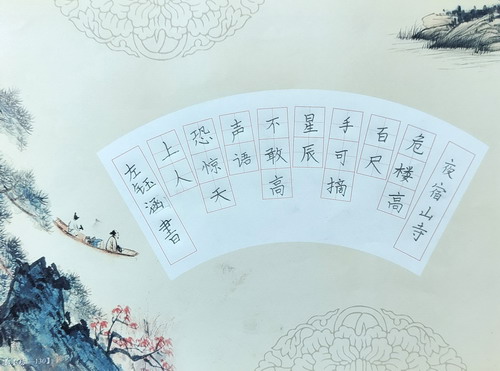 夜宿山寺
危楼高
百尺
手可摘
星辰
不敢高
声语
恐惊天
上人
左钰涵書